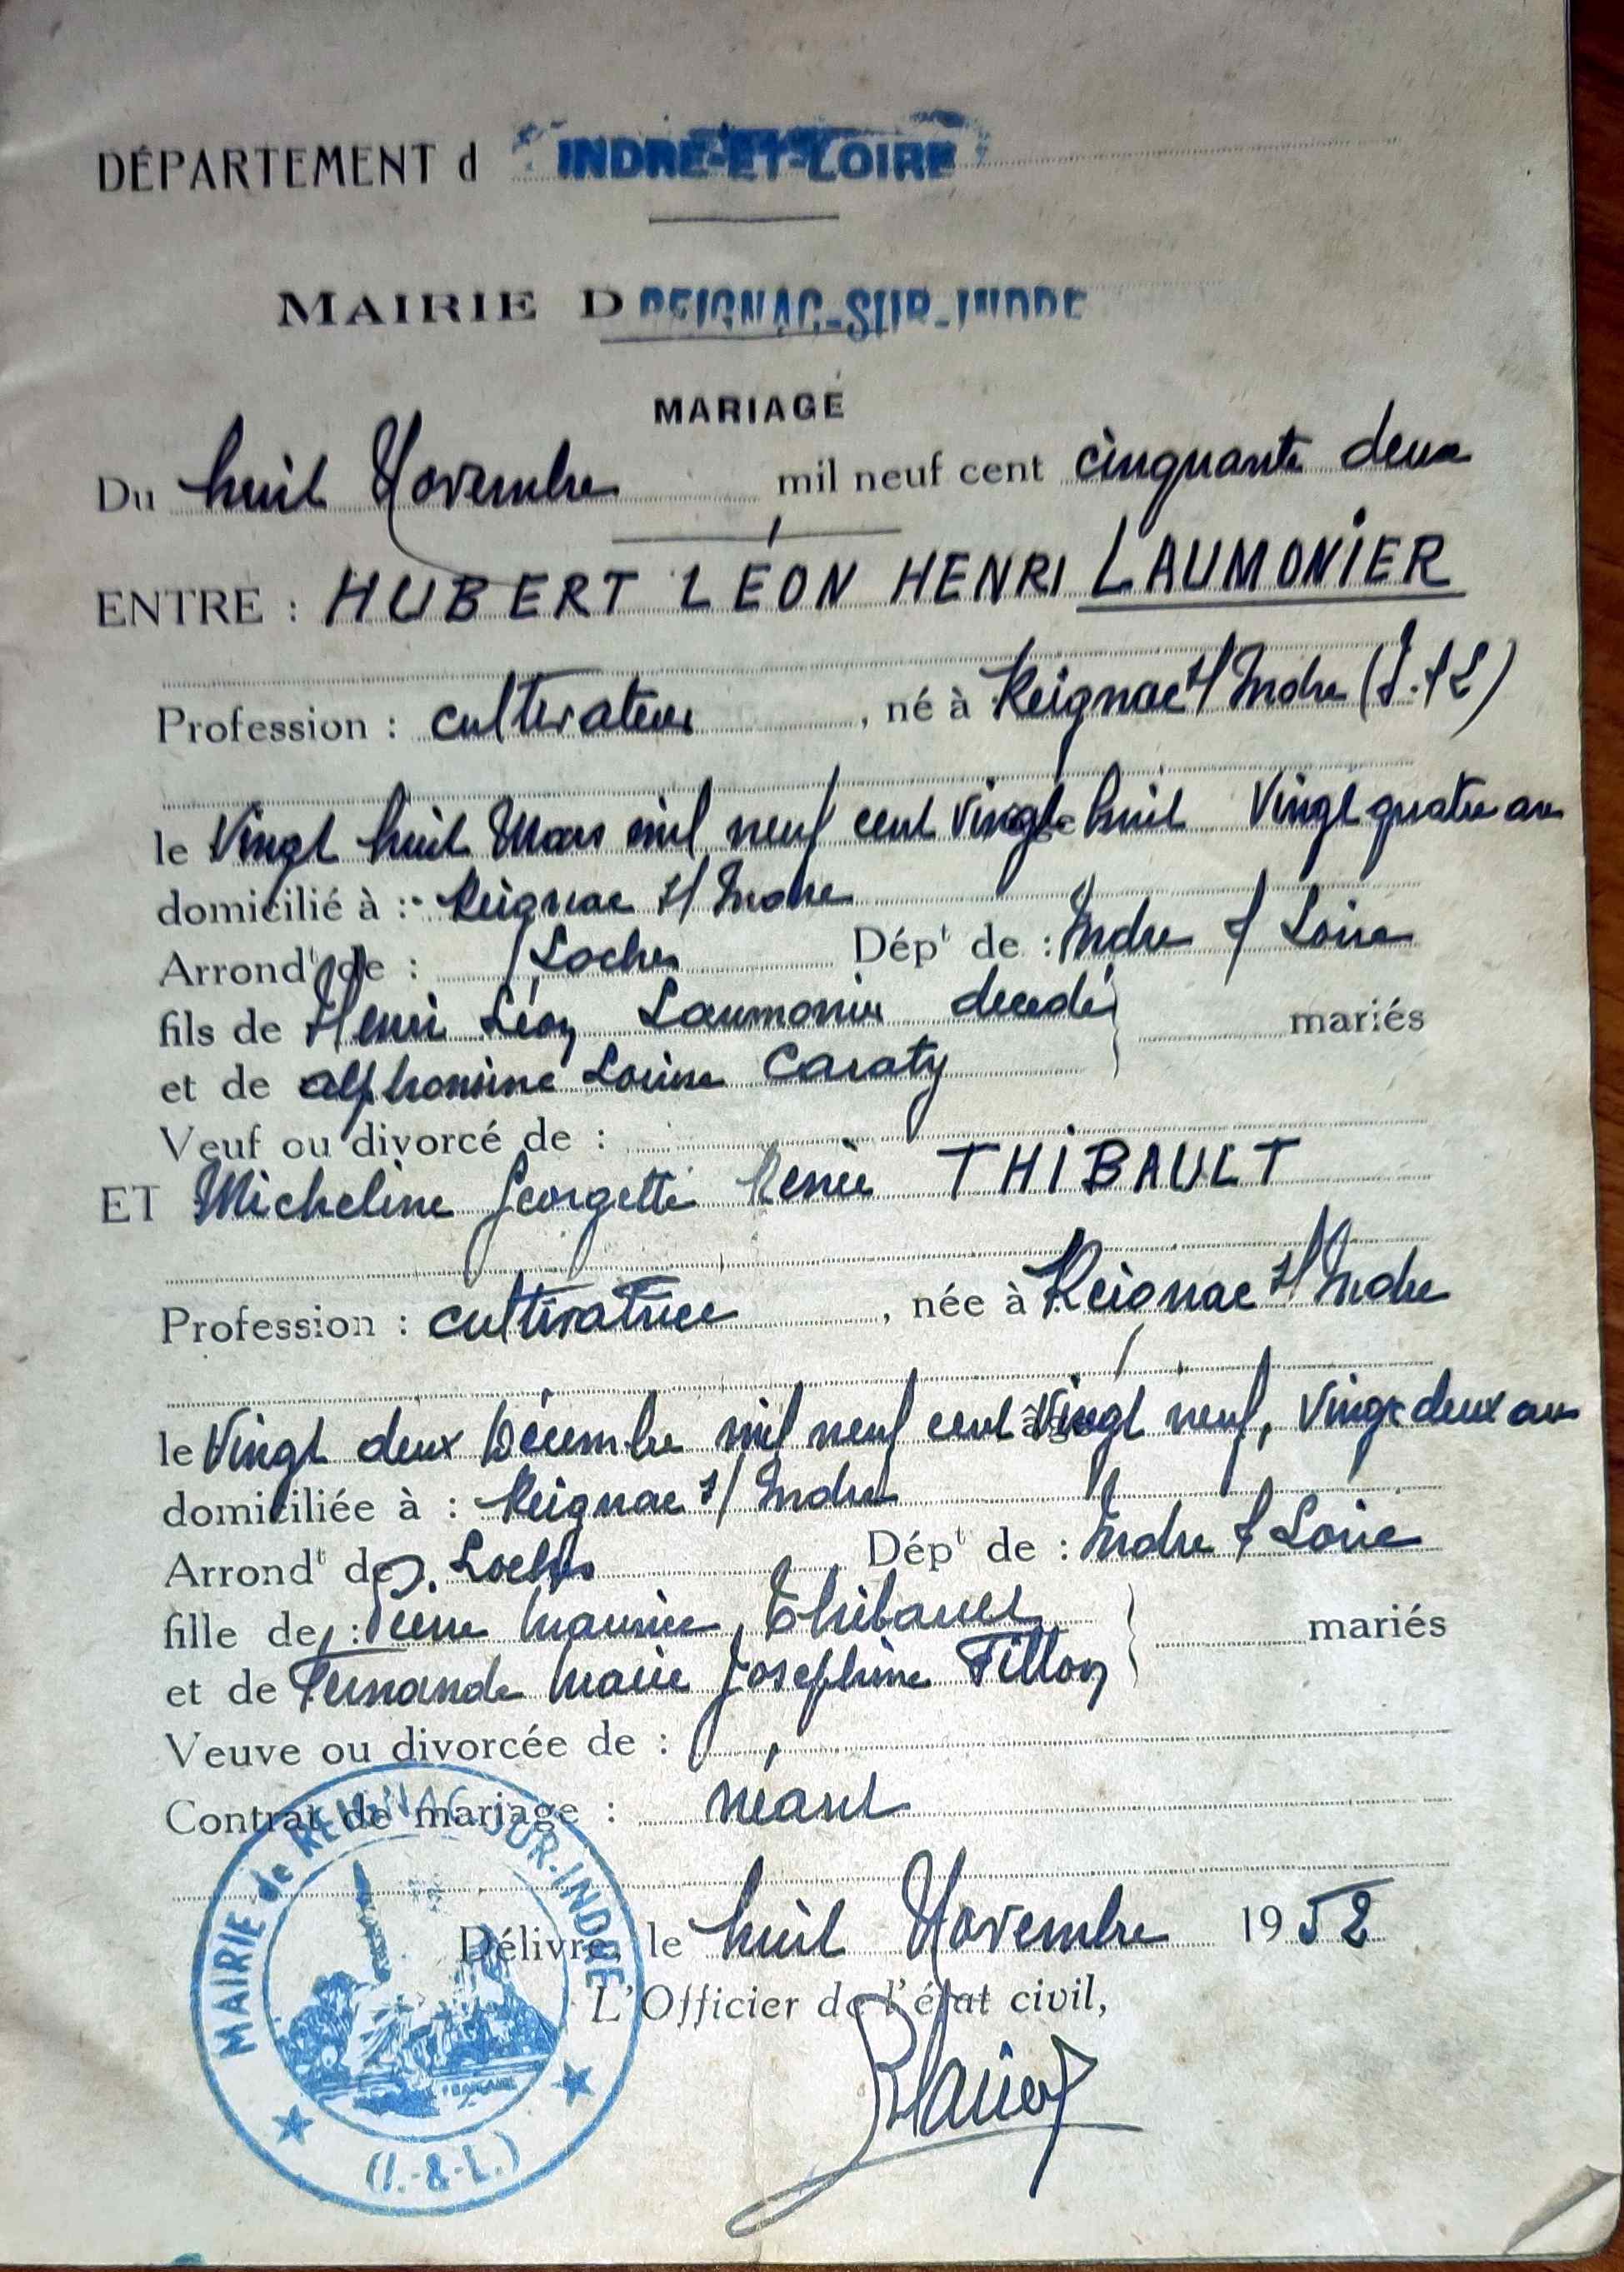 DÉPARTEMENT d INDRE-ET-LOIRE
MAIRIE D REIGNAC-SUR-INDRE
MARIAGE
Du huit Novembre mil neuf cent cinquante deux
ENTRE : HUBERT LÉON HENRI LAUMONIER
Profession : cultivateur, né à Reignac s/ Indre (I. & L)
le Vingt huit Mars mil neuf cent vingt huit Vingt quatre ans
domicilié à : Reignac s/ Indre
Arrondt de : Loches Dépt de : Indre & Loire
fils de Henri Léon Laumonier decedé
mariés
et de alphonsine Louise Caraty
Veuf ou divorcé de :
ET Micheline Georgette Renée THIBAULT
Profession : cultivatrice, née à Reignac s/ Indre
le Vingt deux Décembre mil neuf cent vingt neuf, Vingt deux ans
domiciliée à : Reignac s/ Indre
Arrondt de Loches Dépt de : Indre & Loire
fille de : Pierre Maurice Thibault
mariés
et de Fernande Marie Josephine Fillon
Veuve ou divorcée de :
Contrat de mariage : néant
Délivré, le huit Novembre 1952
L'Officier de l'état civil,
MAIRIE de REIGNAC-SUR-INDRE
(I.-&-L.)